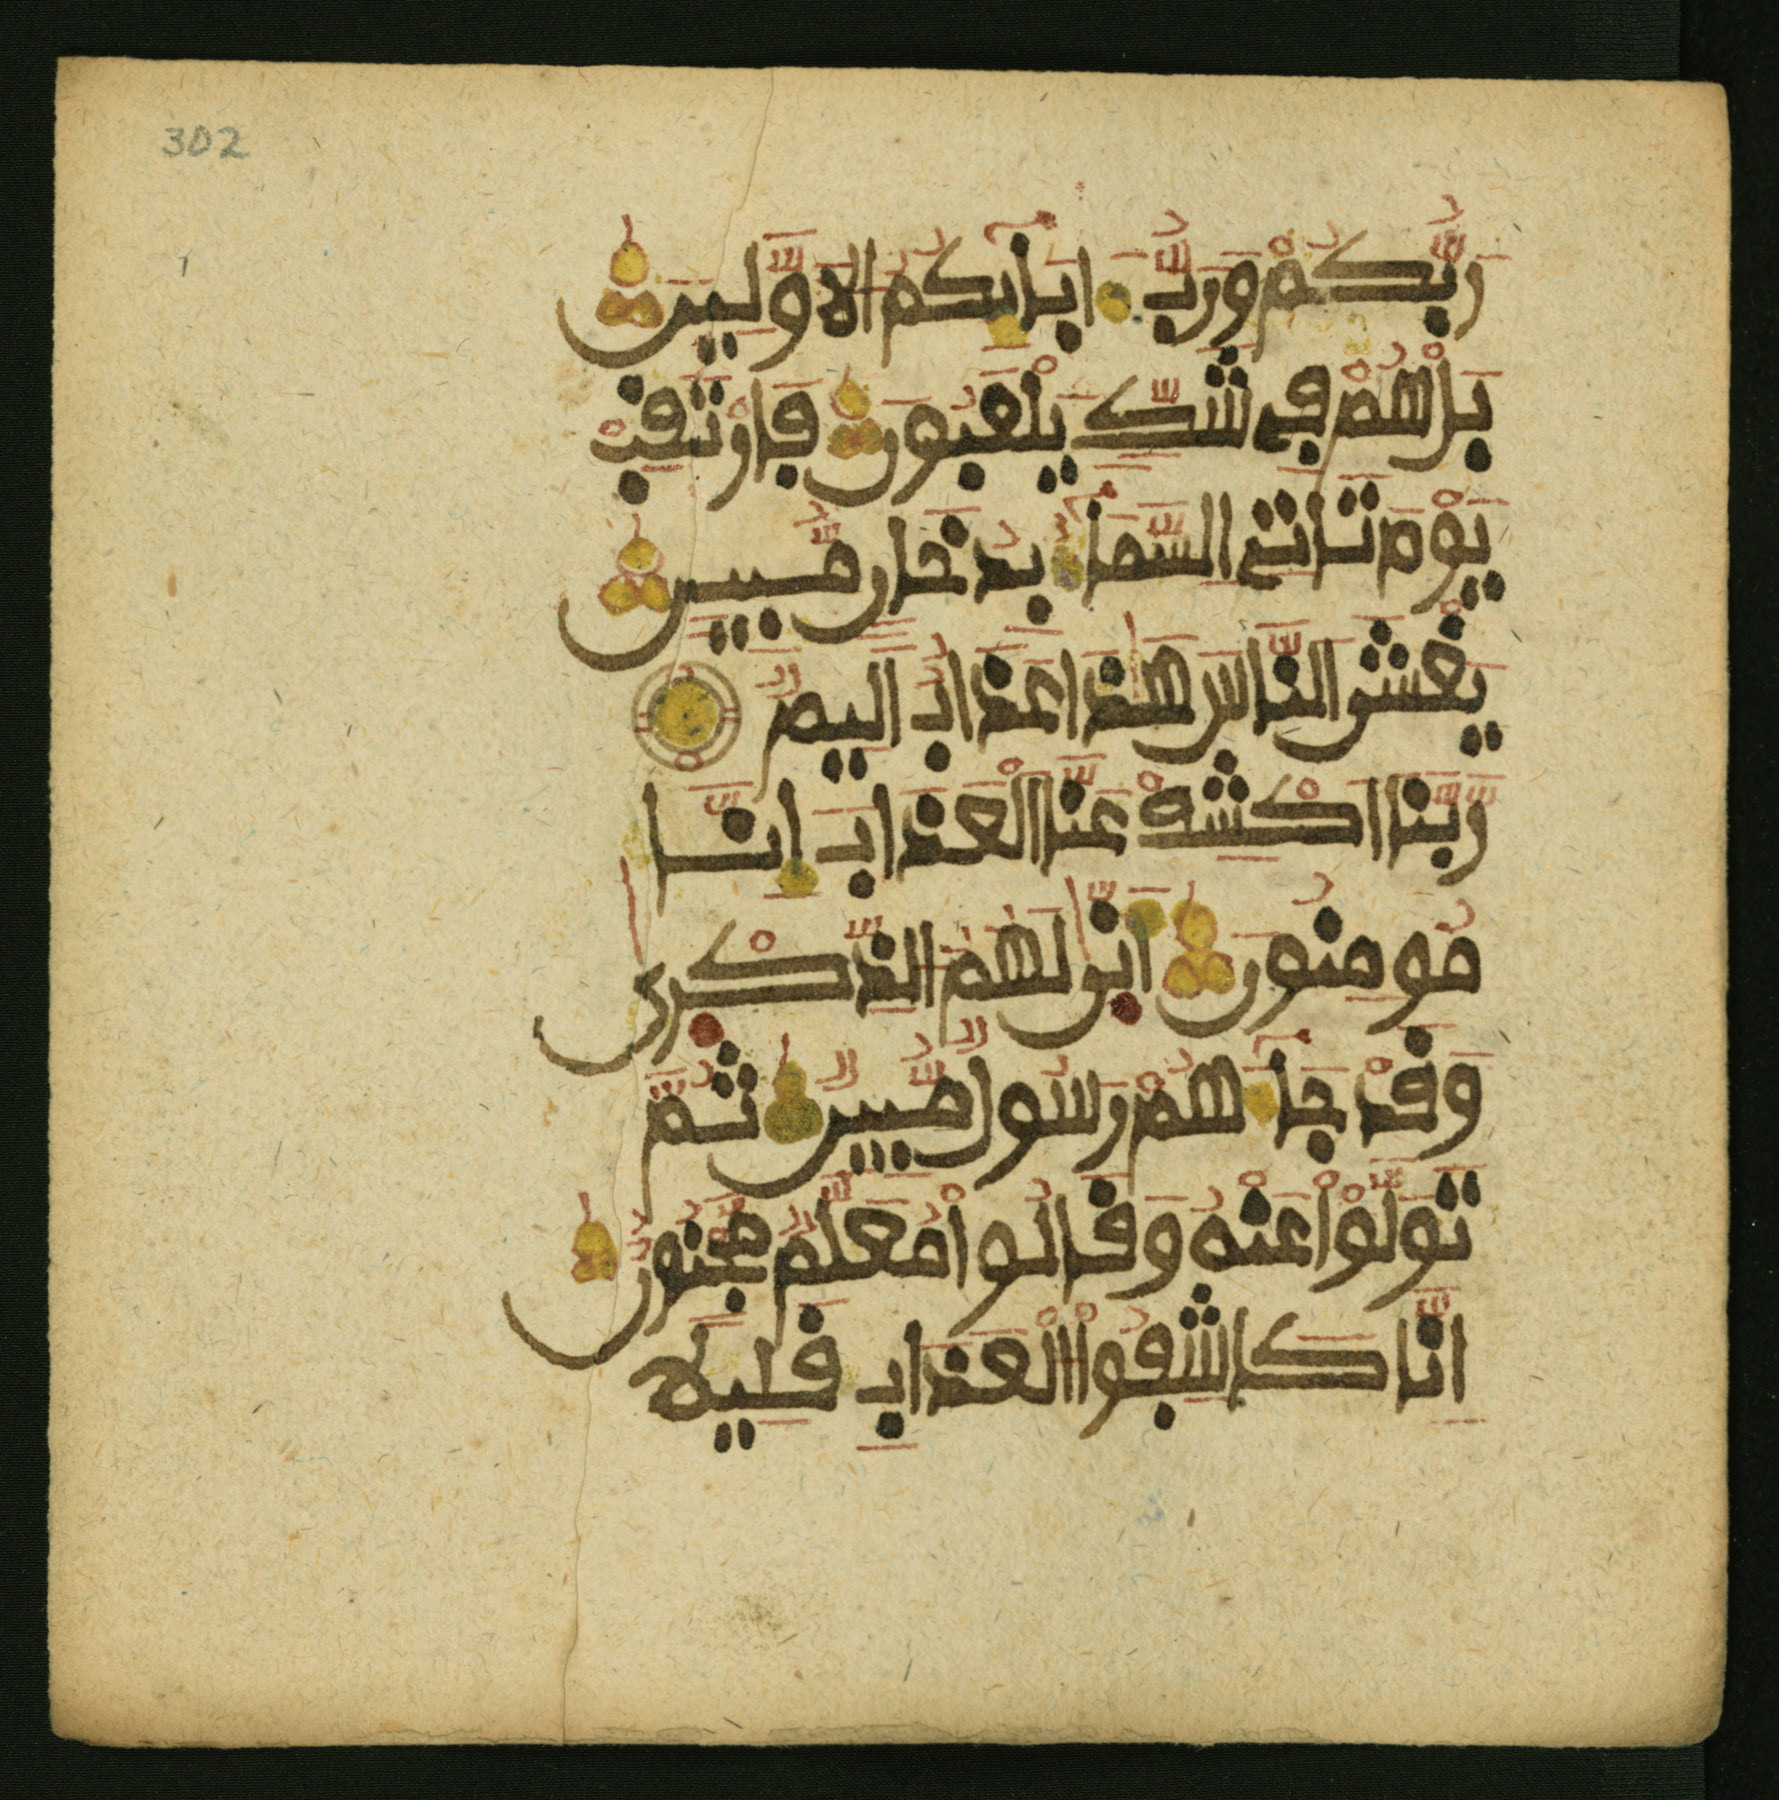 302
رَبُّكُمْ وَرَبُّ ءَابَآئِكُمُ الَاوَّلِينَ
بَلْ هُمْ فِے شَكّٖ يَلْعَبُونَ فَارْتَقِبْ
يَوْمَ تَاتِے السَّمَآءُ بِدُخَانٖ مُّبِينٖ
يَغْشَى النَّاسَ هَٰذَا عَذَابٌ اَلِيمٌ
رَّبَّنَا اَكْشِفْ عَنَّا الْعَذَابَ إِنَّا
مُومِنُونَ أَنّ۪ىٰ لَهُمُ الذِّكْر۪ىٰ
وَقَدْ جَآءَهُمْ رَسُولٌ مُّبِينٌ ثُمَّ
تَوَلَّوْاْ عَنْهُ وَقَالُواْ مُعَلَّمٌ مَّجْنُونٌ
اِنَّا كَاشِفُواْ الْعَذَابِ قَلِيلًا